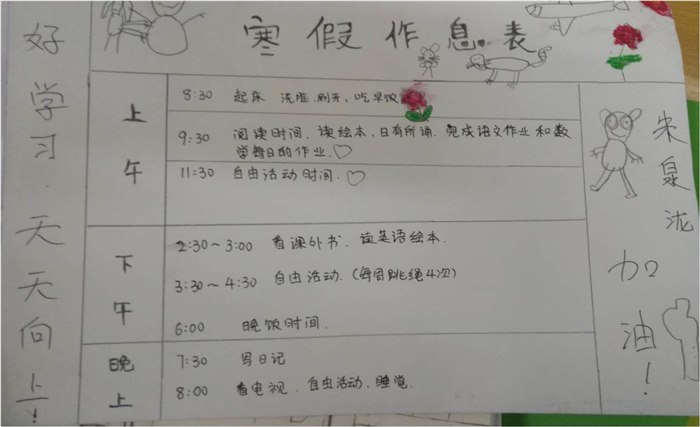 寒假作息表
好学习.天天向上!
上午
8:30 起床 洗脸.刷牙,吃早饭
9:30 阅读时间.读绘本,日有所诵.完成语文作业和数
学每日的作业.♡
11:30 自由活动时间.♡
下午
2:30~3:00 看课外书.读英语绘本.
3:30~4:30 自由活动.(每周跳绳4次)
6:00 晚饭时间.
晚上
7:30 写日记
8:00 看电视.自由活动.睡觉.
朱泉泷
加油!